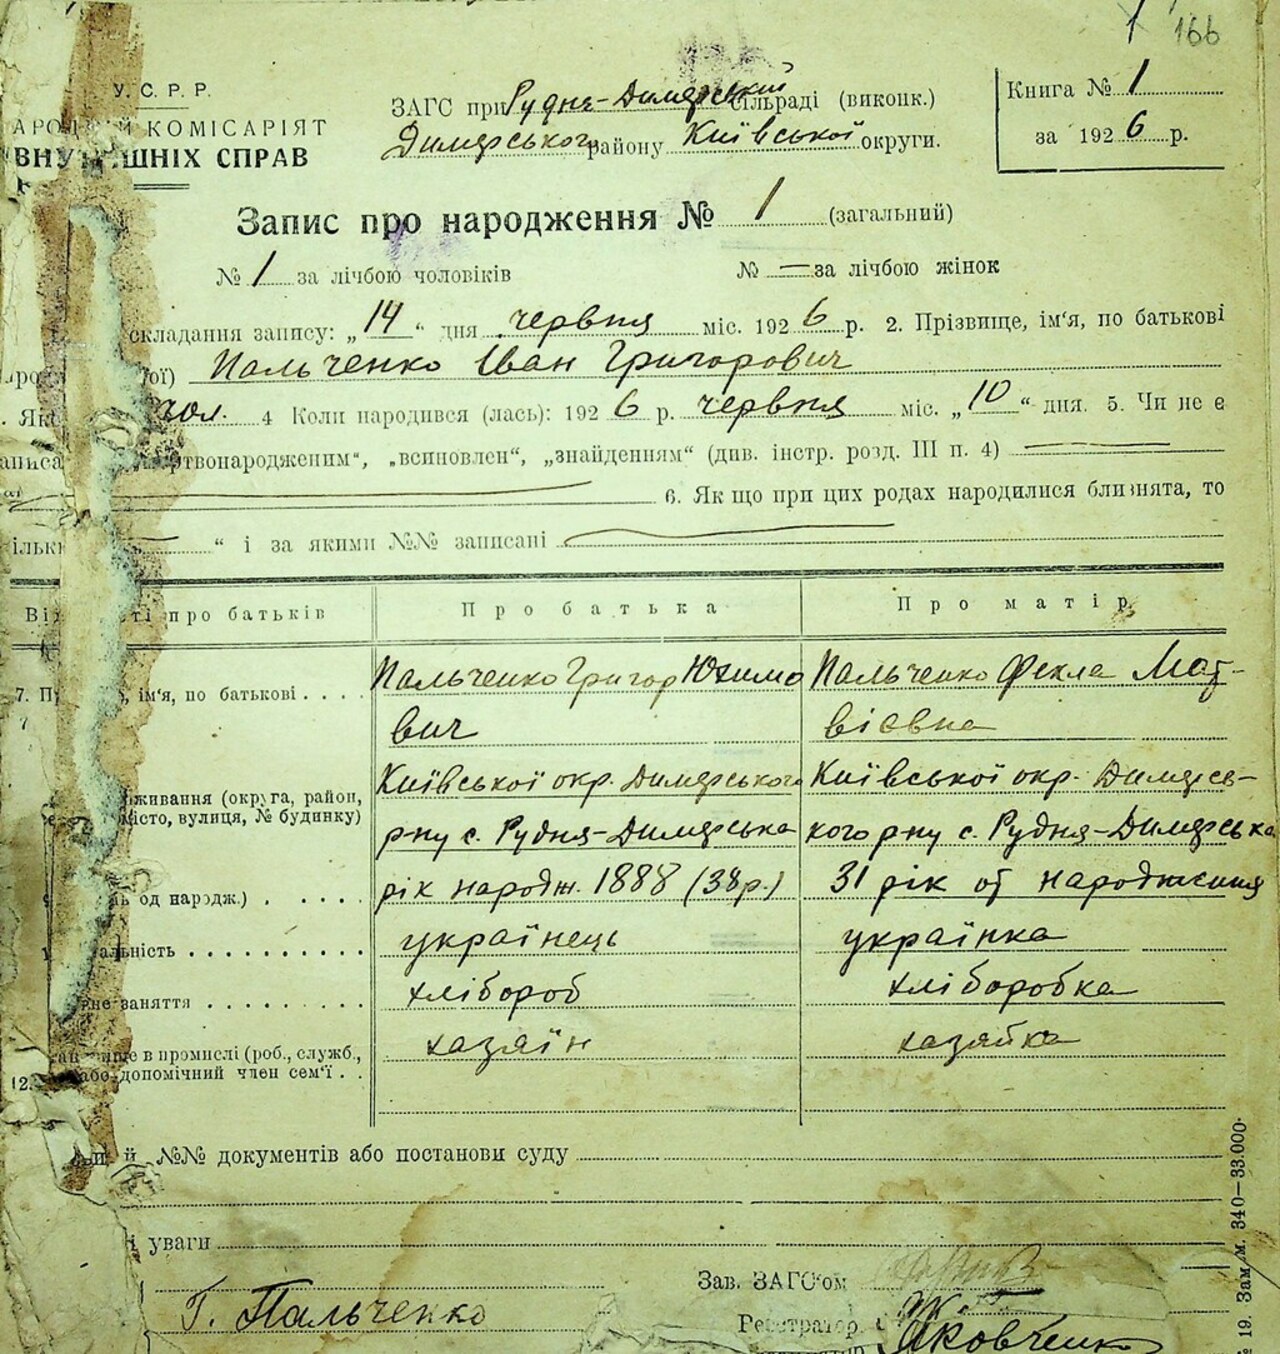 1 166
У. С. Р. Р.
КОМІСАРІЯТ
СПРАВ
ЗАГС при Рудня-Димерській сільраді (виконк.)
Димерського району Київської округи.
Книга № 1
за 1926 р.
Запис про народження № 1 (загальний)
№ 1 за лічбою чоловіків № — за лічбою жінок
складання запису: „14“ дня червня міс. 1926 р. 2. Прізвище, ім'я, по батькові
Пальченко Іван Григорович
чол. 4 Коли народився (лась): 1926 р. червня міс. „10“ дня. 5. Чи не є
ртвонародженим“, „всиновлен“, „знайденням“ (див. інстр. розд. III п. 4)
6. Як що при цих родах народилися близнята, то
“ і за якими №№ записані
ті про батьків Про батька Про матір
7. ім'я, по батькові . . . . Пальченко Григор Юхимо Пальченко Фекла Мат-
вич вієвна
Київської окр. Димерського Київської окр. Димерсь-
живання (округа, район,
місто, вулиця, № будинку) рну с. Рудня-Димерська кого рну с. Рудня-Димерська
од народж.) . . . . . рік народж. 1888 (38 р.) 31 рік от народження
альність . . . . . . . . . . українець українка
заняття . . . . . . . . хлібороб хліборобка
в промислі (роб., служб., хазяїн хазяйка
12. або допомічний член сем'ї . .
й №№ документів або постанови суду
і уваги
Зав. ЗАГС'ом
Г. Пальченко
Реєстратор
Яковченко
№ 19. Зам. м. 340—33.000.